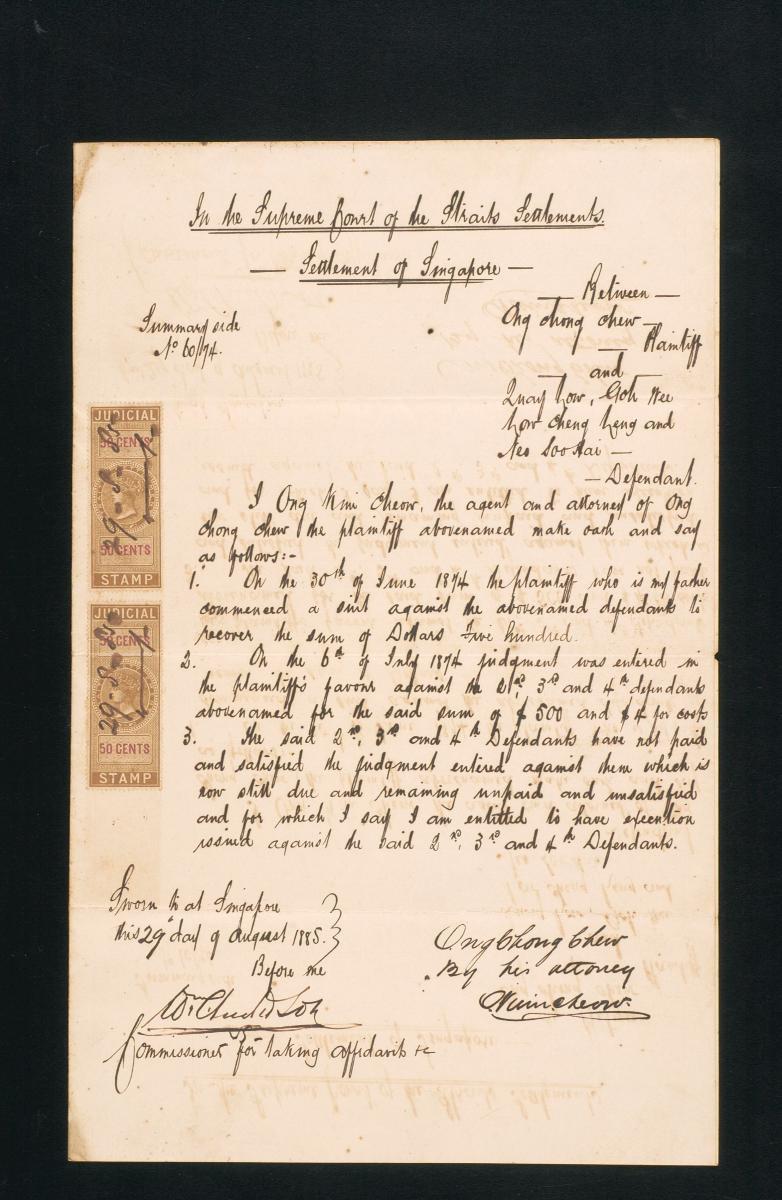 In the Supreme Court of the Straits Settlements.
— Settlement of Singapore —
— Between —
Summary side
No 60/74.
Ong Chong Chew —
— Plaintiff
— and —
Quay Low, Goh Wee
Low Cheng Leng and
Neo Soo Kai —
— Defendant.
JUDICIAL
50 CENTS
29-8-85
50 CENTS
STAMP
JUDICIAL
50 CENTS
29-8-85
50 CENTS
STAMP
I Ong Kim Cheow, the agent and attorney of Ong
Chong Chew the plaintiff abovenamed make oath and say
as follows:-
1. On the 30th of June 1874 the plaintiff who is my father
commenced a suit against the abovenamed defendants to
recover the sum of Dollars Five hundred.
2. On the 6th of July 1874 judgment was entered in
the plaintiff's favour against the 2nd, 3rd and 4th defendants
abovenamed for the said sum of $ 500 and $ 4 for costs
3. The said 2nd, 3rd and 4th Defendants have not paid
and satisfied the judgment entered against them which is
now still due and remaining unpaid and unsatisfied
and for which I say I am entitled to have execution
issued against the said 2nd, 3rd and 4th Defendants.
Sworn to at Singapore
this 29th day of August 1885.
Before me
Ong Chong Chew
By his attorney
Kim Cheow.
Commissioner for taking affidavits &c